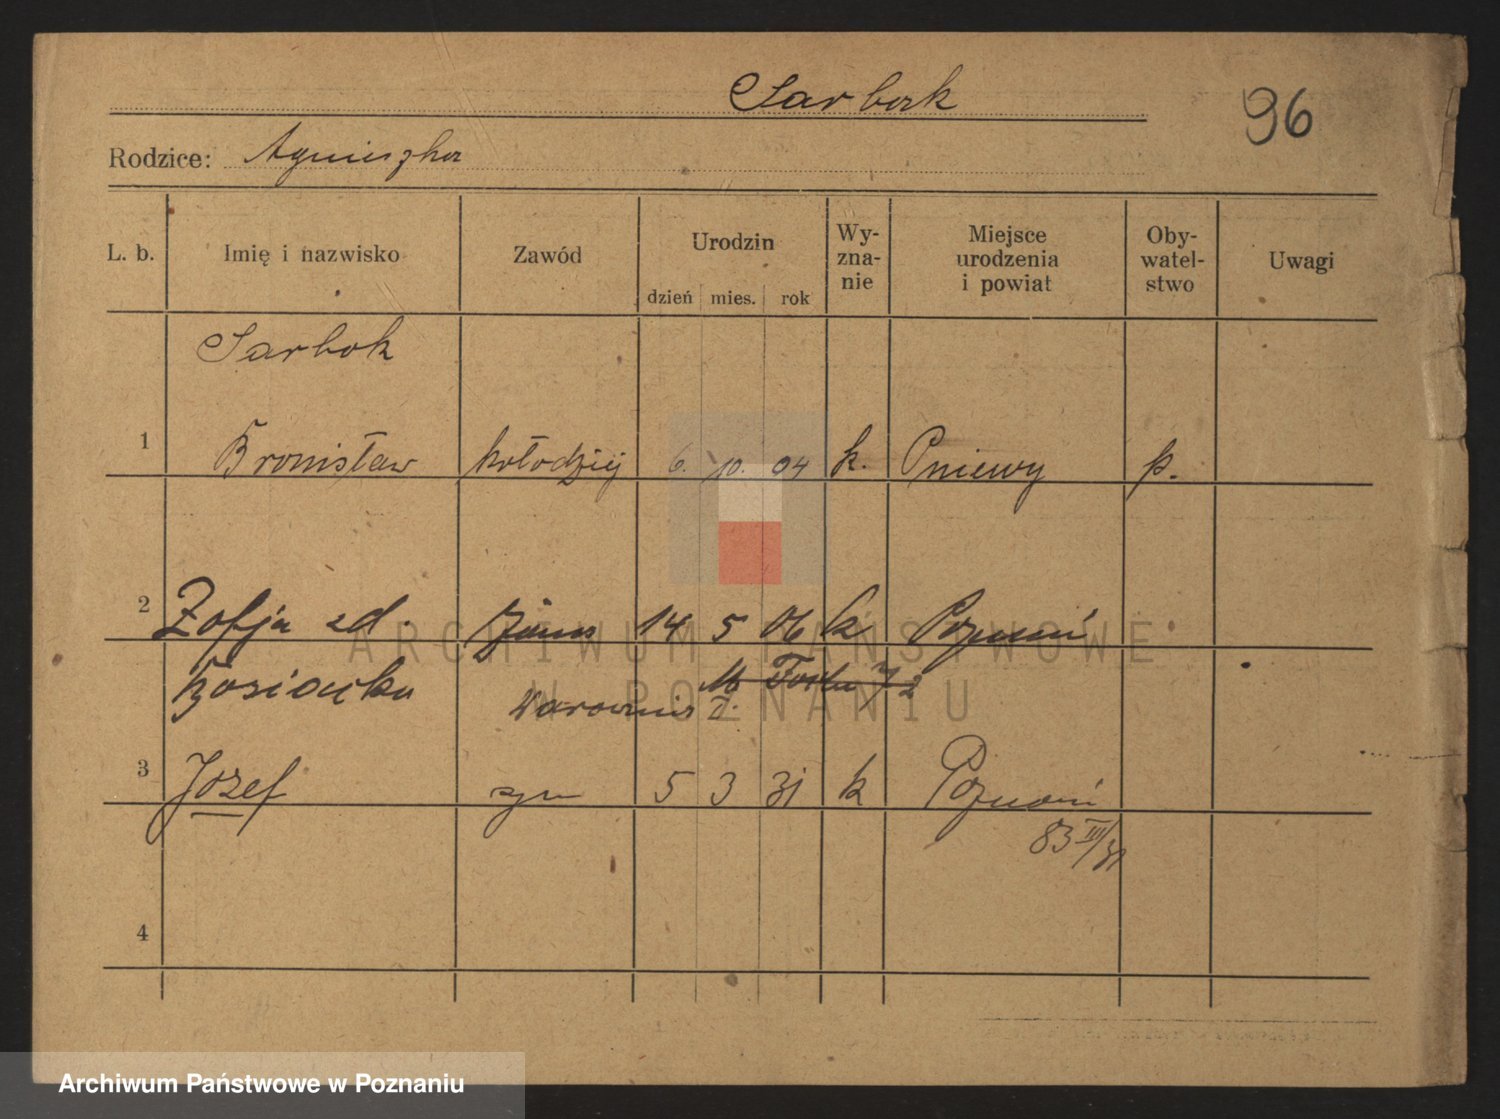 Sarbok
96
Rodzice: Agnieszka
L. b. Imię i nazwisko Zawód Urodzin dzień mies. rok Wy-zna-nie Miejsce urodzenia i powiat Oby-watel-stwo Uwagi
Sarbok
1 Bronisław kołodziej 6. 10. 04 k. Pniewy p.
2 Zofja zd. żona 14 5 06 k Poznań
3 Józef syn 5 3 31 k Poznań
83 III/31
4
ARCHIWUM PAŃSTWOWE
W POZNANIU
Archiwum Państwowe w Poznaniu